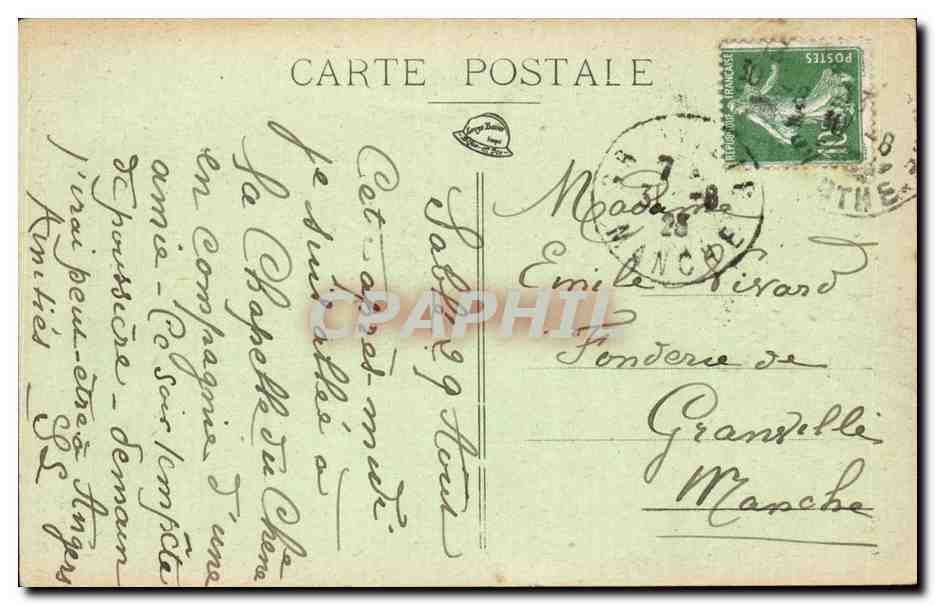 CARTE POSTALE
RÉPUBLIQUE FRANÇAISE
POSTES
10
MANCHE
Sablé 29 Août
Cet après-midi
je suis allée à
La Chapelle du Chêne
en Compagnie d'une
amie - Ce soir tempête
de poussière - demain
j'irai peut-être à Angers
Amitiés
Madame
Emile Vivard
Fonderie de
Granville
Manche
CPAPHIL